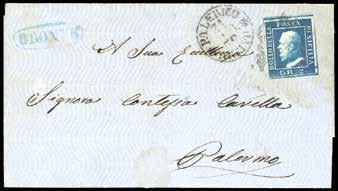 PALERMO
POSTA
BOLLO DELLA
DI SICILIA
GR. 2
A Sua Eccellenza
Signora Contessa Cavella
Palermo